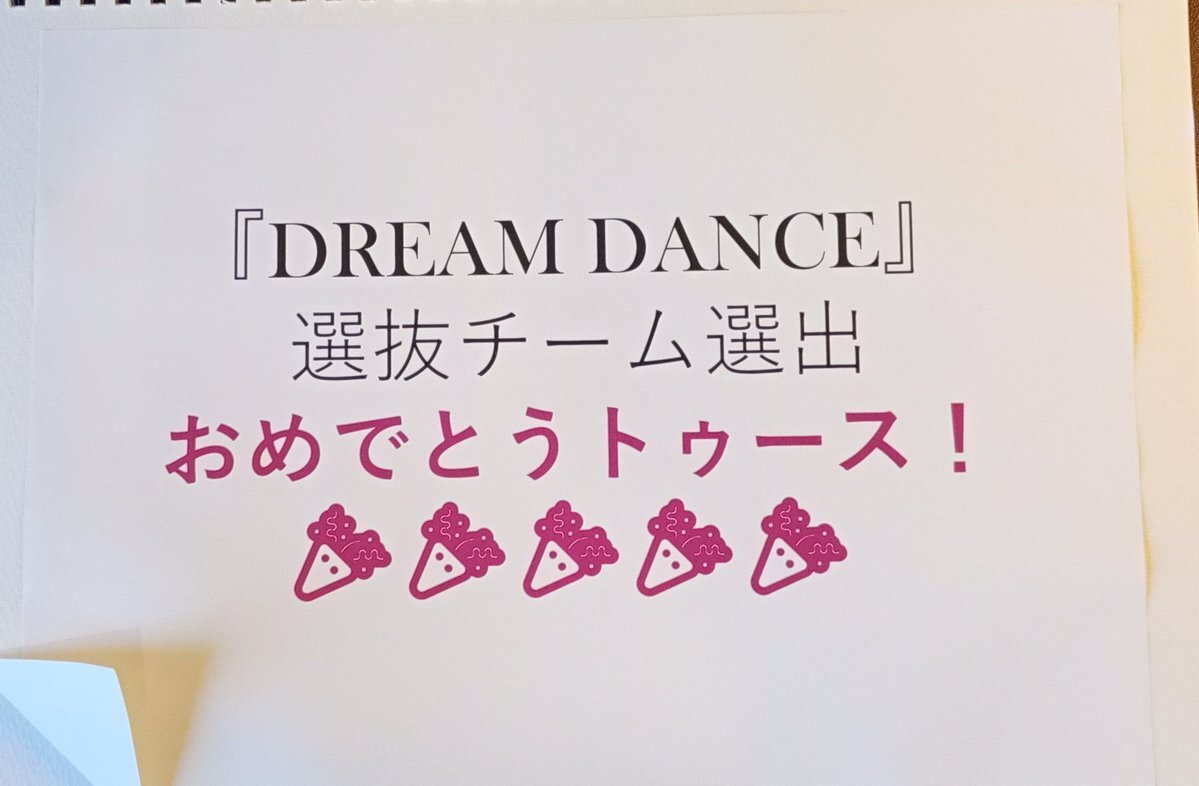 『DREAM DANCE』
選抜チーム選出
おめでとうトゥース！